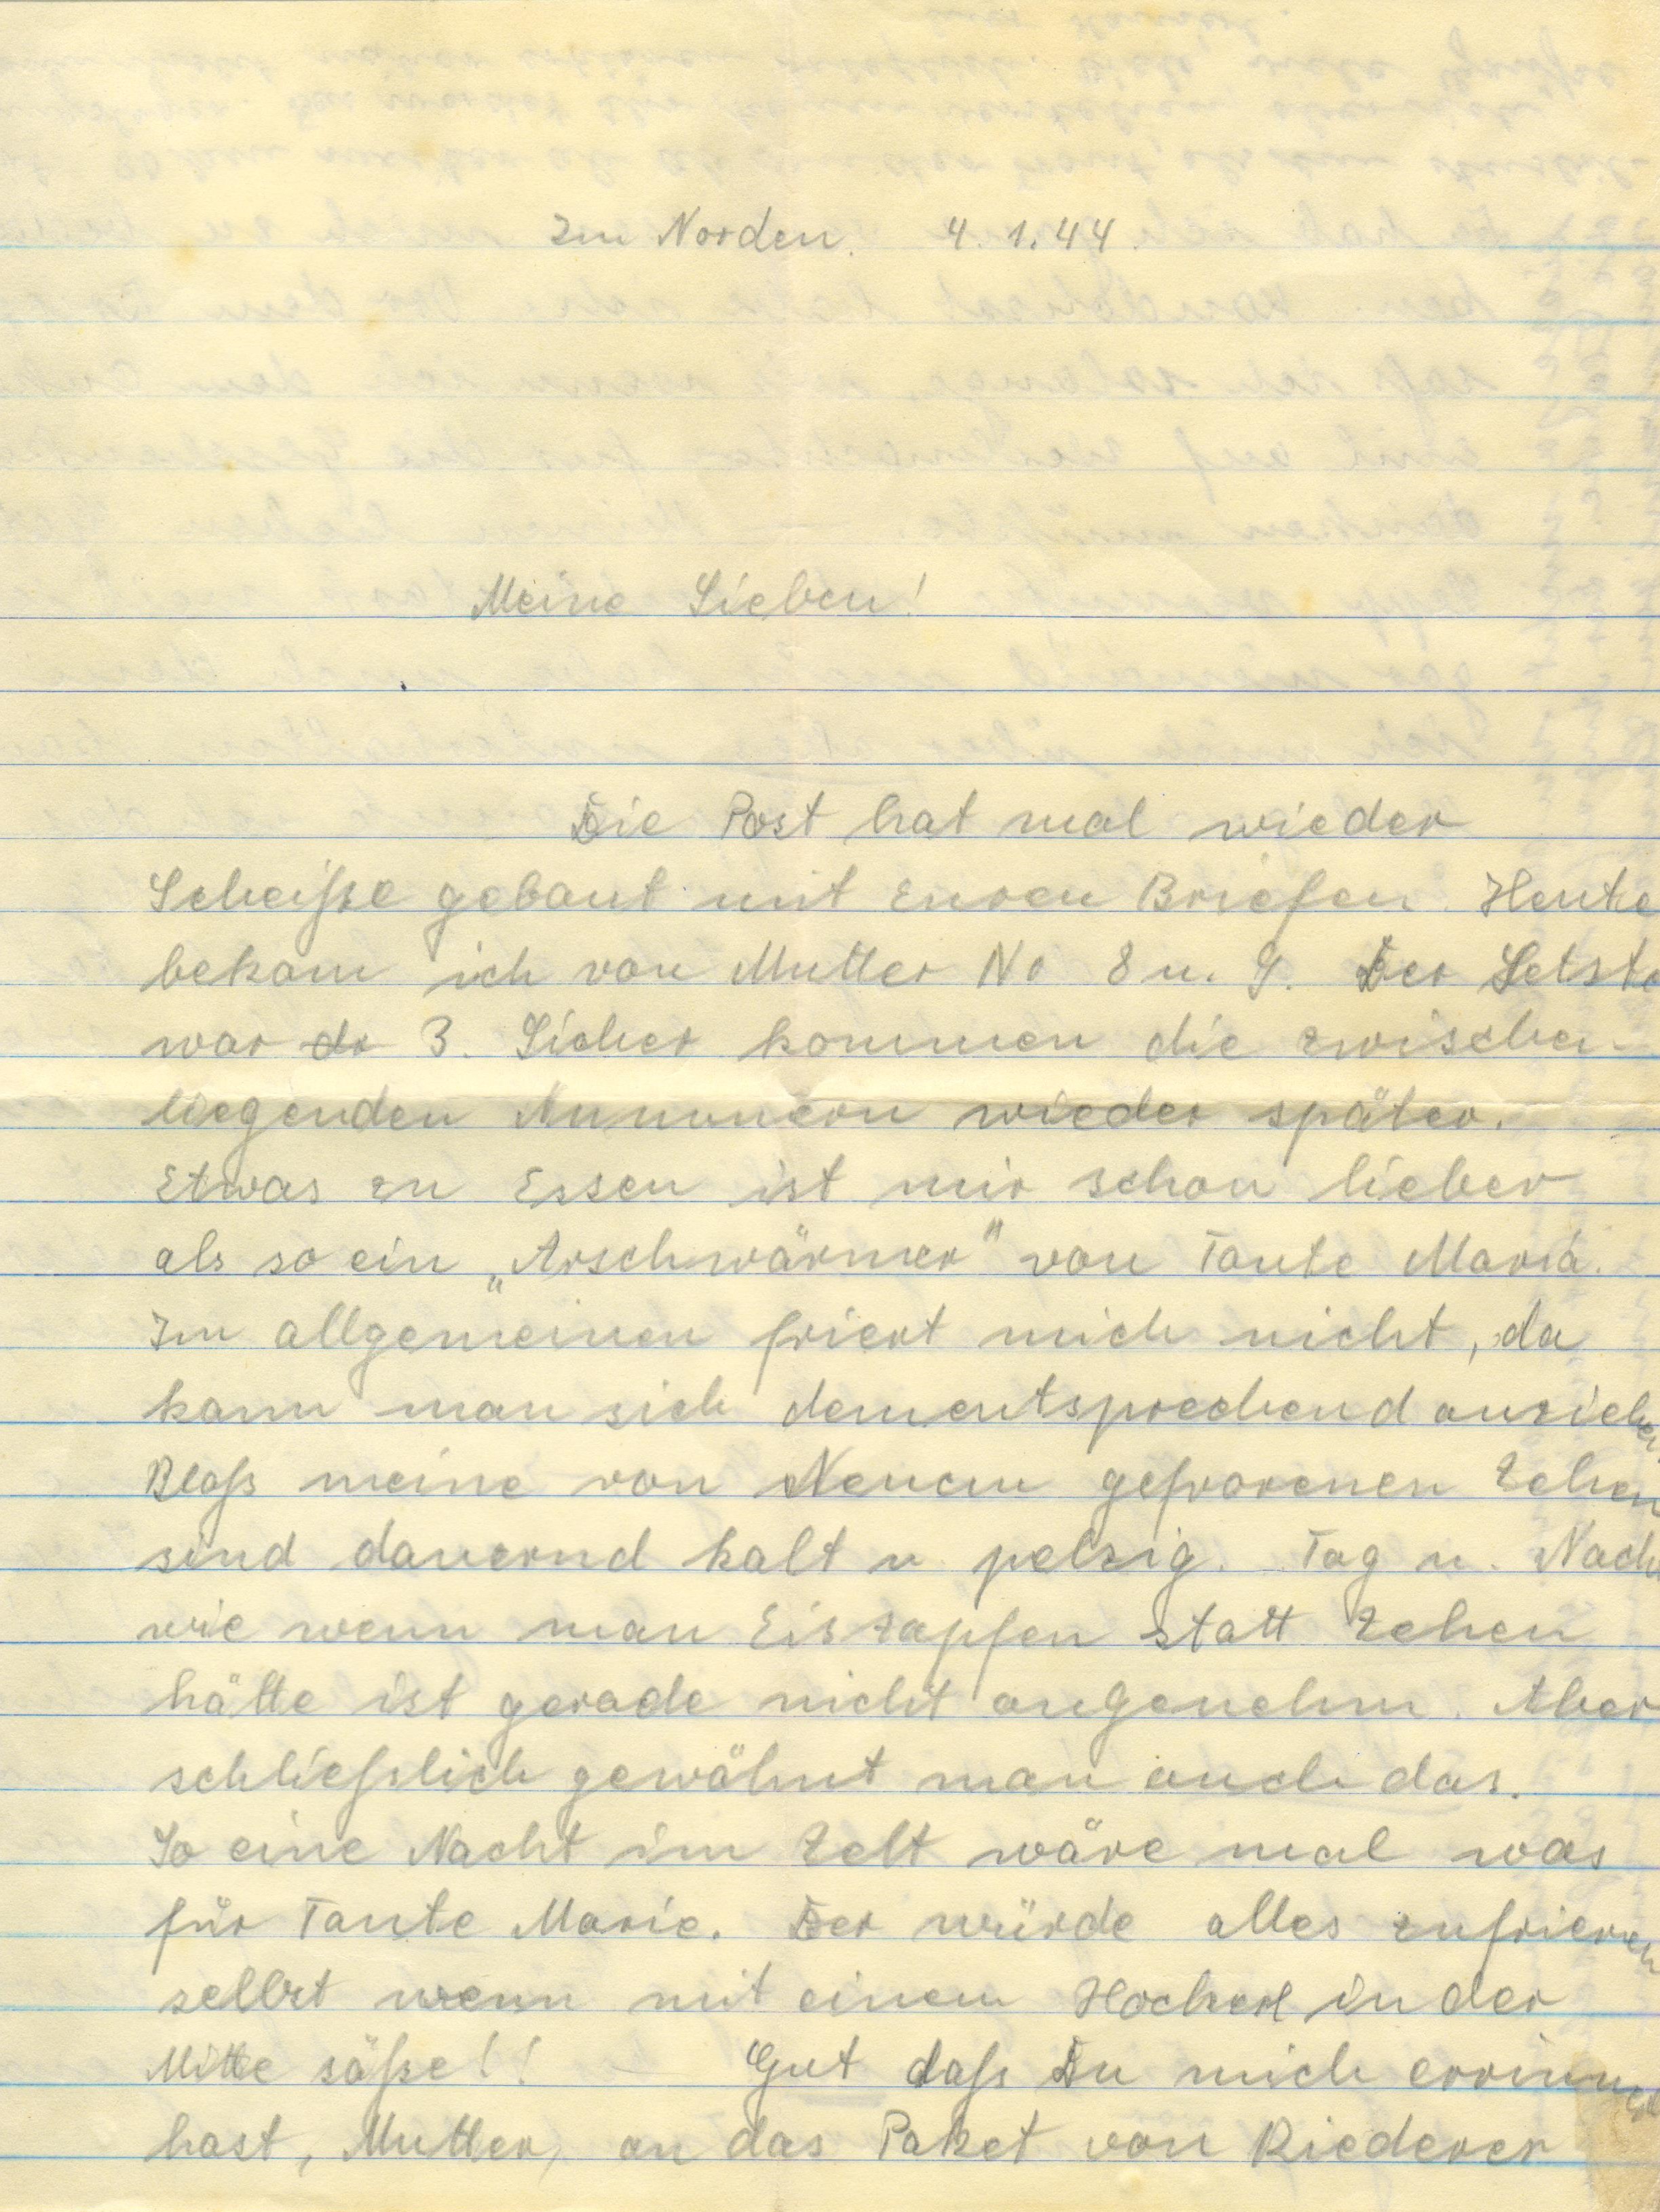 Im Norden. 4.1.44.
Meine Lieben!
Die Post hat mal wieder
Scheiße gebaut mit Euren Briefen. Heute
bekam ich von Mutter No 8 u. 9. Der Letzte
war dr 3. Sicher kommen die zwischen-
liegenden Nummern wieder später.
Etwas zu Essen ist mir schon lieber
als so ein „Arschwärmer" von Tante Maria.
Im allgemeinen friert mich nicht, da
kann man sich dementsprechend anziehen,
Bloß meine von Neuem gefrorenen Zehen
sind dauernd kalt u. pelzig. Tag u. Nacht
wie wenn man Eiszapfen statt Zehen
hätte ist gerade nicht angenehm. Aber
schließlich gewöhnt man auch das.
So eine Nacht im Zelt wäre mal was
für Tante Marie. Der würde alles zufrieren
selbst wenn mit einem Hockerl in der
Mitte säße!! — Gut daß Du mich errinnert
hast, Mutter, an das Paket von Riederer